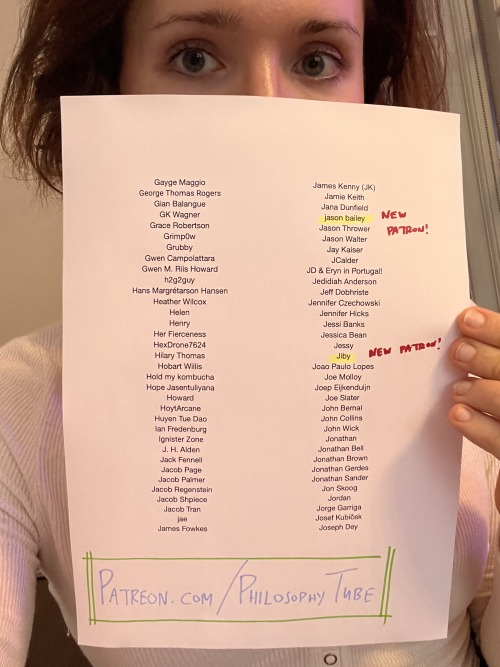 Gayge Maggio
George Thomas Rogers
Gian Balangue
GK Wagner
Grace Robertson
Grimp0w
Grubby
Gwen Campolattara
Gwen M. Riis Howard
h2g2guy
Hans Margrétarson Hansen
Heather Wilcox
Helen
Henry
Her Fierceness
HexDrone7624
Hilary Thomas
Hobart Willis
Hold my kombucha
Hope Jasentuliyana
Howard
HoytArcane
Huyen Tue Dao
Ian Fredenburg
Ignister Zone
J. H. Alden
Jack Fennell
Jacob Page
Jacob Palmer
Jacob Regenstein
Jacob Shpiece
Jacob Tran
jae
James Fowkes
James Kenny (JK)
Jamie Keith
Jana Dunfield
jason bailey NEW
Jason Thrower PATRON!
Jason Walter
Jay Kaiser
JCalder
JD & Eryn in Portugal!
Jedidiah Anderson
Jeff Dobhriste
Jennifer Czechowski
Jennifer Hicks
Jessi Banks
Jessica Bean
Jessy
Jiby NEW PATRON!
Joao Paulo Lopes
Joe Molloy
Joep Eijkenduijn
Joe Slater
John Bernal
John Collins
John Wick
Jonathan
Jonathan Bell
Jonathan Brown
Jonathan Gerdes
Jonathan Sander
Jon Skoog
Jordan
Jorge Garriga
Josef Kubíček
Joseph Dey
PATREON.COM/PHILOSOPHYTUBE